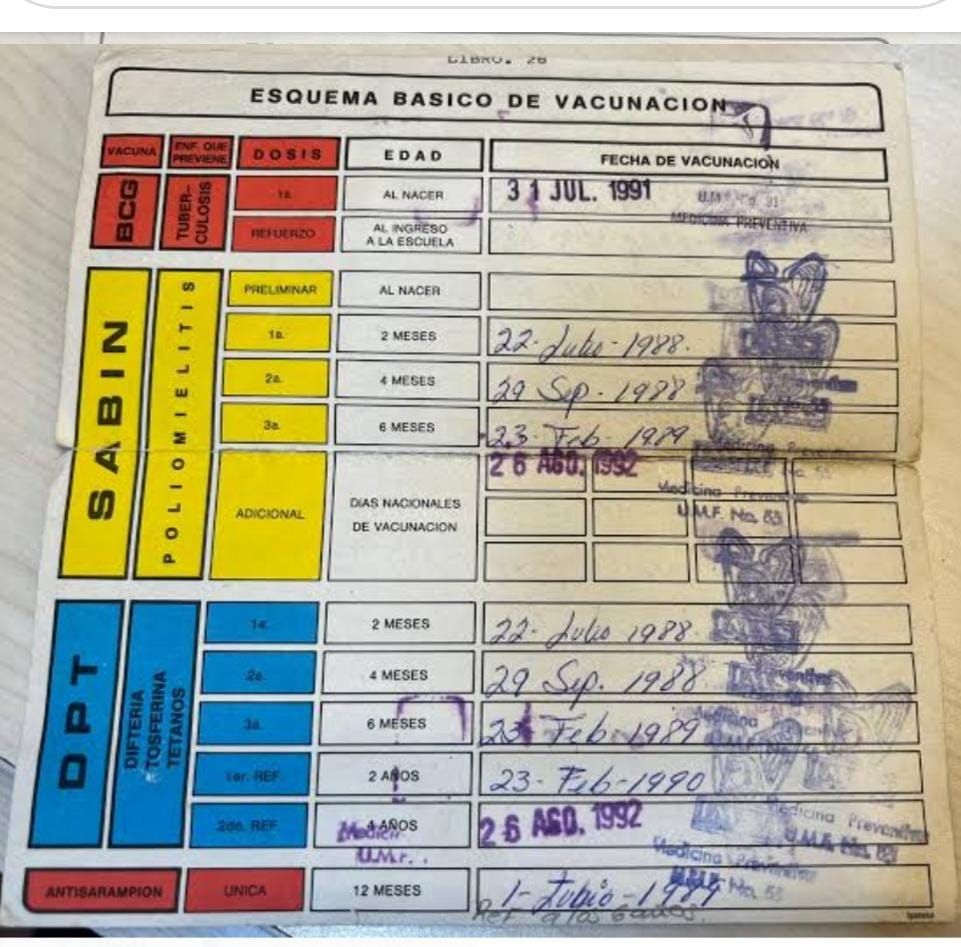 LIBRO. 26
ESQUEMA BASICO DE VACUNACION
VACUNA ENF. QUE PREVIENE DOSIS EDAD FECHA DE VACUNACION
BCG TUBER-CULOSIS 1a. AL NACER 31 JUL. 1991 U.M No. 31
MEDICINA PREVENTIVA
REFUERZO AL INGRESO A LA ESCUELA
SABIN POLIOMIELITIS PRELIMINAR AL NACER
1a. 2 MESES 22-Julio-1988.
2a. 4 MESES 29 Sep. 1988
3a. 6 MESES 23-Feb-1989
ADICIONAL DIAS NACIONALES DE VACUNACION 26 AGO. 1992
Medicina Preventiva
U.M.F. No. 53
DPT DIFTERIA TOSFERINA TETANOS 1a. 2 MESES 22-Julio 1988
2a. 4 MESES 29 Sep. 1988
3a. 6 MESES 23 Feb-1989
1er. REF. 2 AÑOS 23-Feb-1990
2do. REF. 4 AÑOS 26 AGO. 1992
Medicina Preventiva
U.M.F. No. 53
Medicina Preventiva
U.M.F. No. 53
ANTISARAMPION UNICA 12 MESES 1-Jubio-1989
Ref a los 6 años.